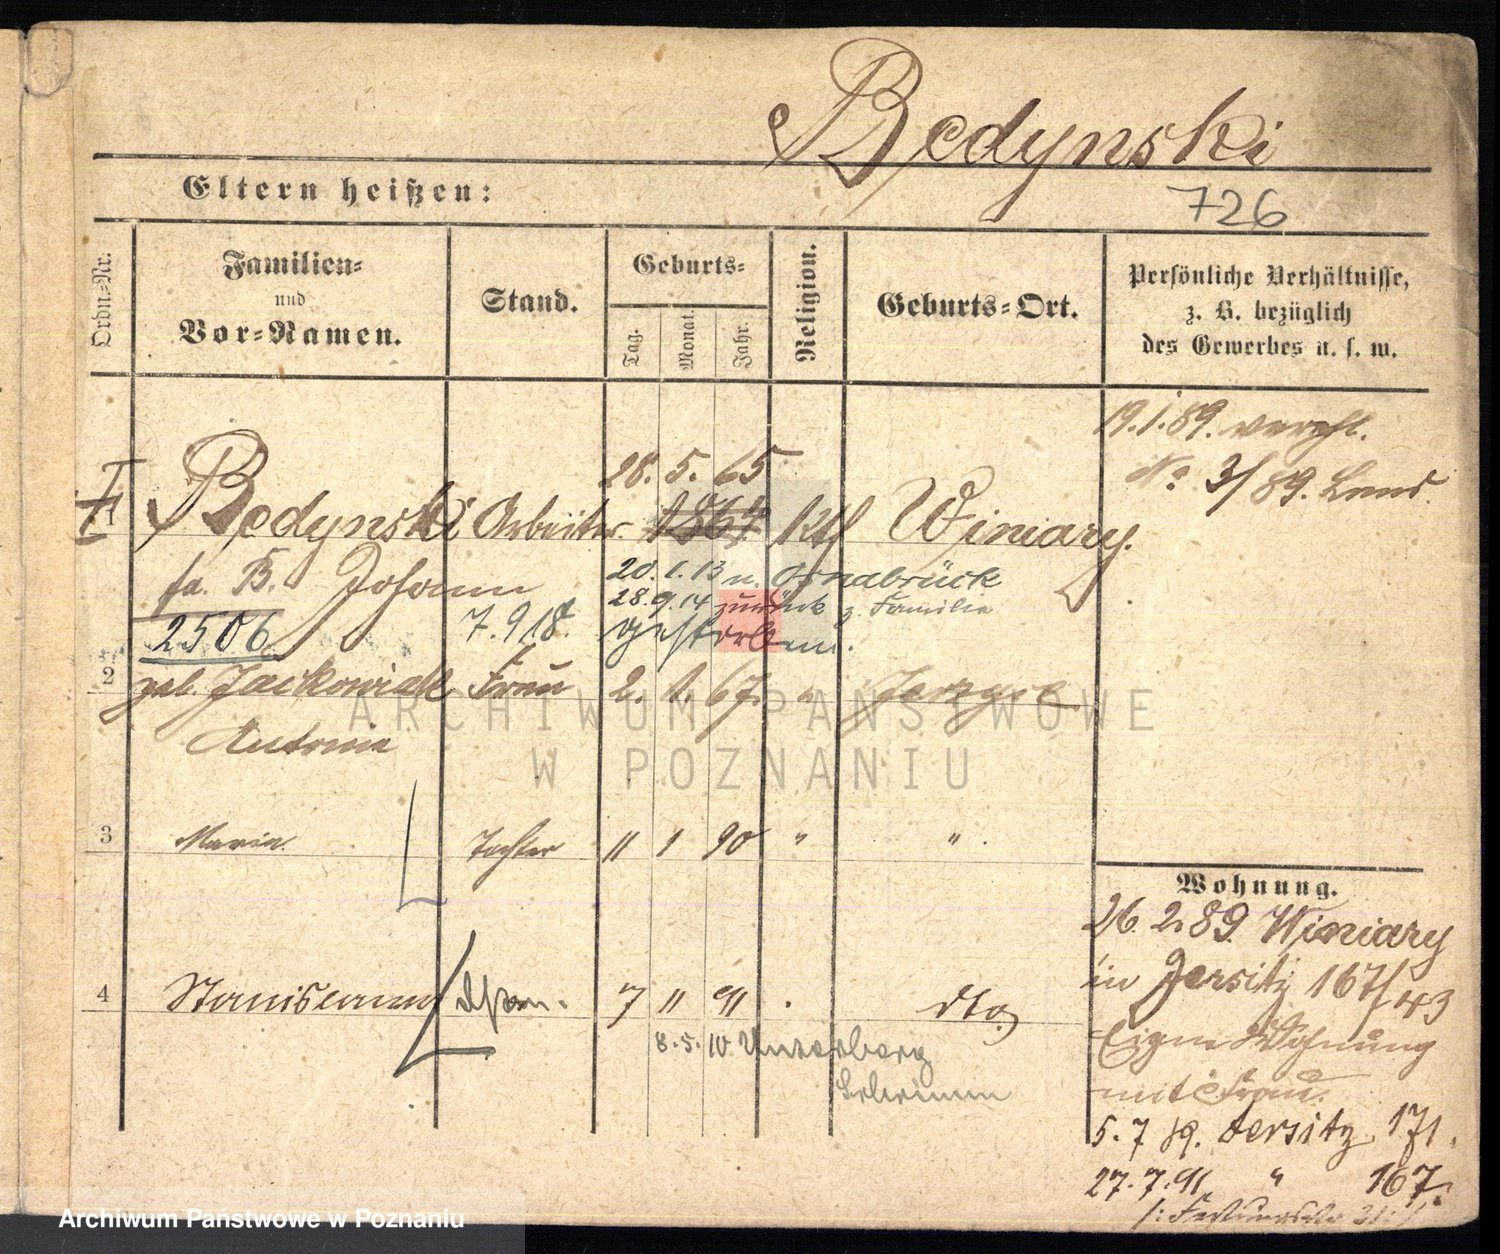 Bedynski
Eltern heißen:
726
Ordn.-Nr.
Familien-
und
Vor-Namen.
Stand.
Geburts-
Tag.
Monat.
Jahr.
Religion.
Geburts-Ort.
Persönliche Verhältnisse,
z. B. bezüglich
des Gewerbes u. s. w.
19.1.89. verehl.
No 3/89.
28. 5. 65
1 Bedynski Arbeiter. Kth Winiary.
B. Johann
20.1.13 n. Osnabrück
28.9.14 zurück z. Familie
2506 7.9.18. gestorben.
2 geb. Jackowiak Frau 2. 1. 67. "
Antonie
3 Maria Tochter 11 1 90 " "
Wohnung.
26. 2. 89 Winiary
in Jersitz 167/
4 Stanislaus 7 11 91 dto
8.5.10
Eigene Wohnung
mit Frau.
5. 7 89. Jersitz 171.
27.7.91 " 167.
ARCHIWUM PAŃSTWOWE
W POZNANIU
Archiwum Państwowe w Poznaniu